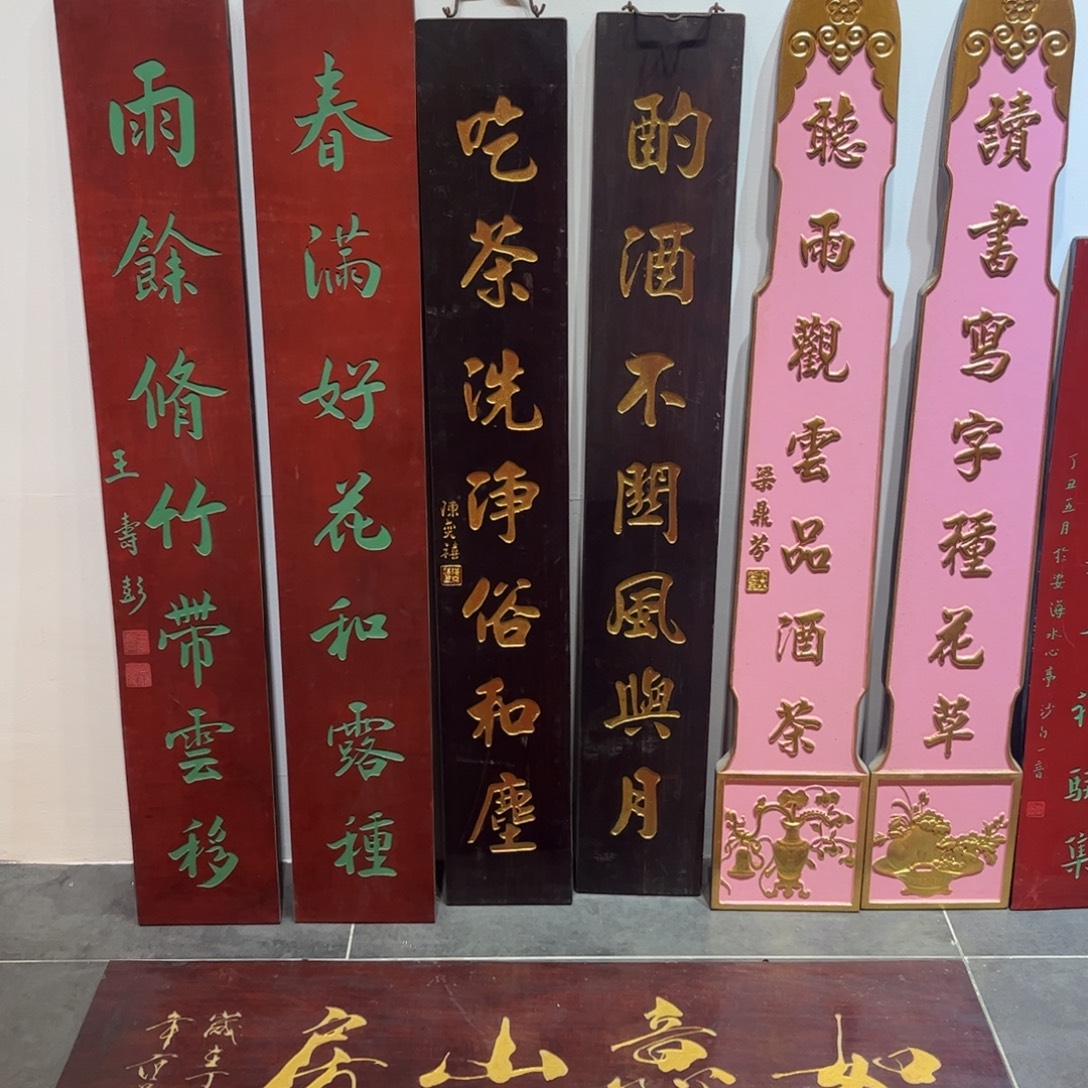 丁丑五月於安海水心亭
集
讀書寫字種花草
聽雨觀雲品酒茶
梁鼎芬
酌酒不関風與月
吃茶洗淨俗和塵
陳奕禧
春滿好花和露種
雨餘脩竹帶雲移
王壽彭
如意山房